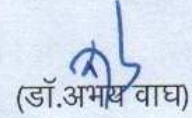 (डॉ.अभय वाघ)